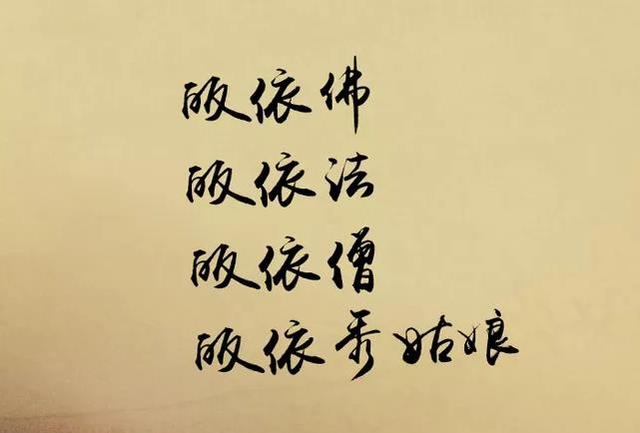 皈依佛
皈依法
皈依僧
皈依秀姑娘